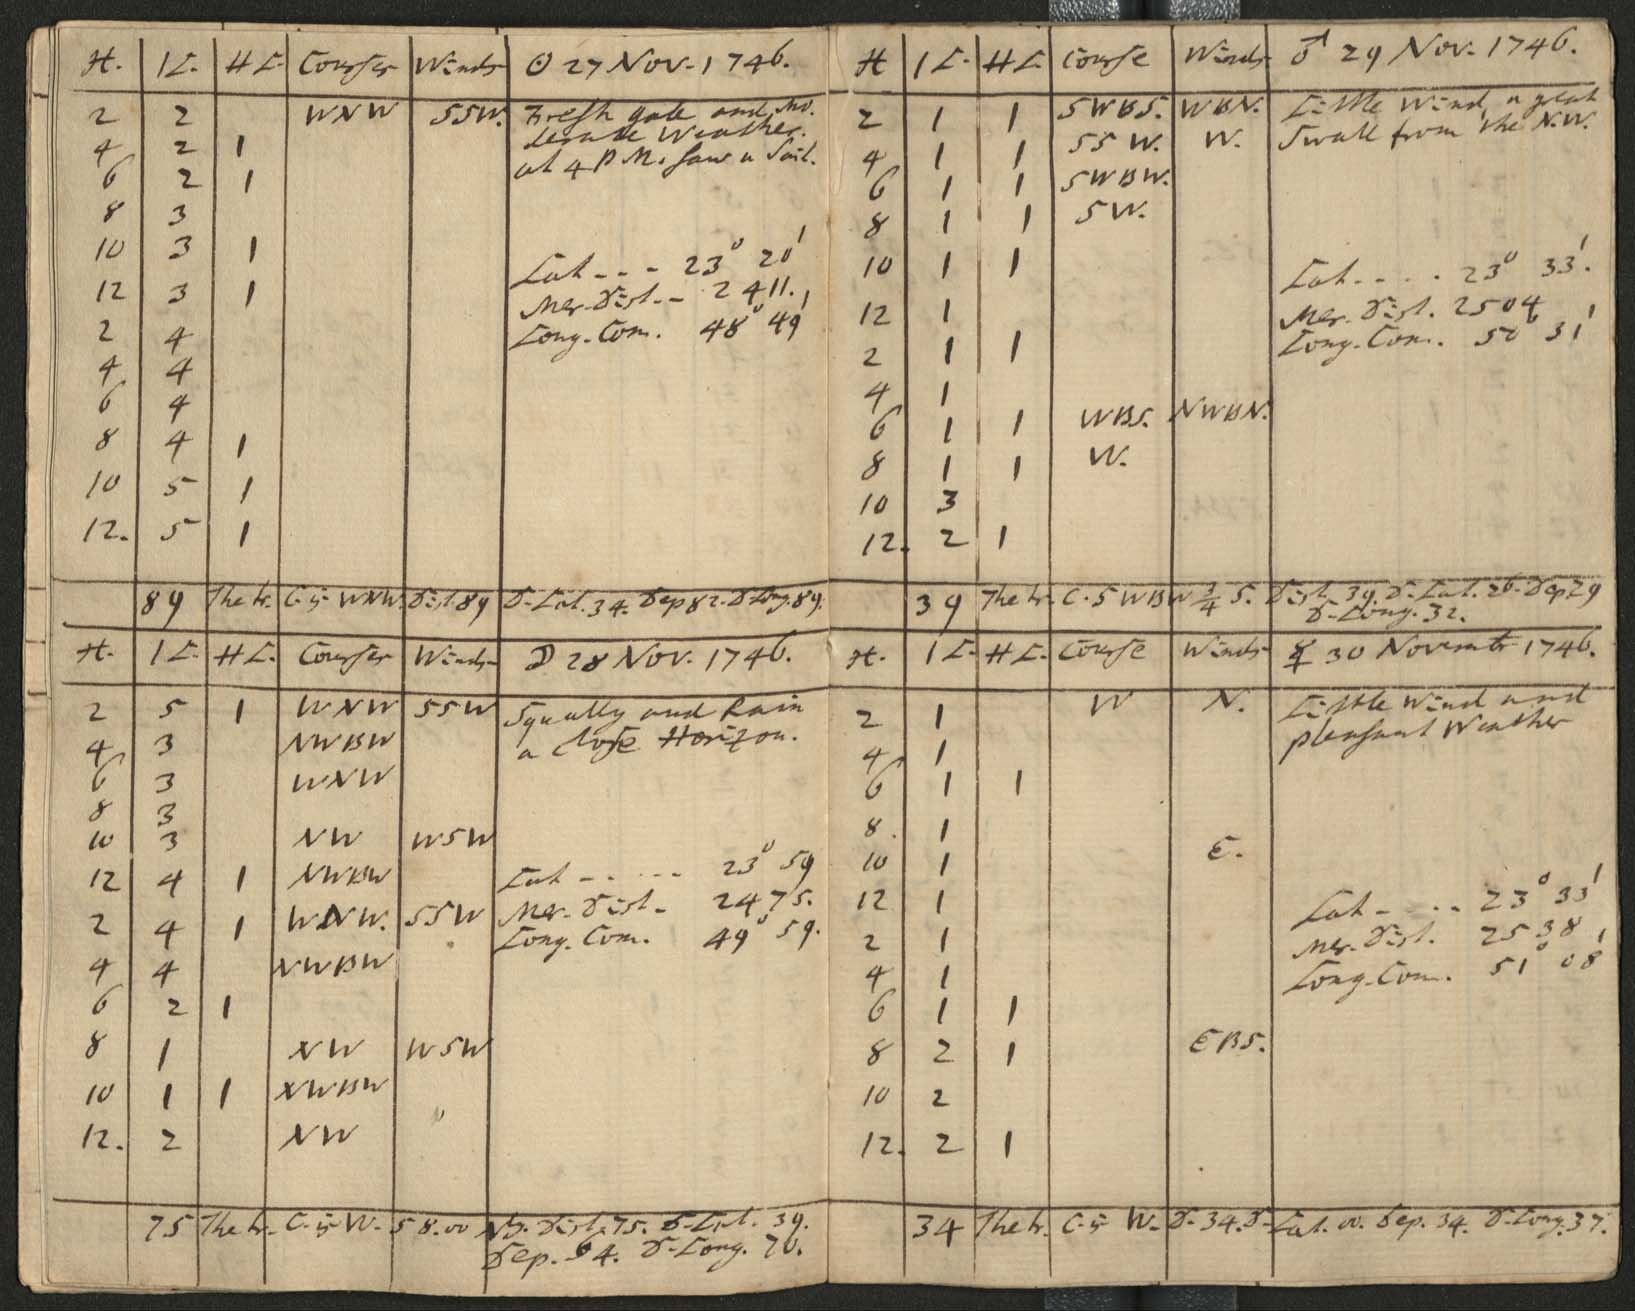 H. 1L. HL. Courses Winds ☉ 27 Nov. 1746.
2 2 WNW SSW. Fresh gale and Mo.
derate Weather.
4 2 1 at 4 P M. saw a Sail.
6 2 1
8 3
10 3 1 Lat - - - 23° 20'
12 3 1 Mer. Dist. - - 2411.
2 4 Long. Com. 48° 49'
4 4
6 4
8 4 1
10 5 1
12. 5 1
89 The tr. C. is WNW. Dist. 89 D. Lat. 34. Dep 82. D Long. 89.
H. 1L. HL. Courses Winds ☽ 28 Nov. 1746.
2 5 1 WNW SSW Squally and Rain
4 3 NWBW a close Horizon.
6 3 WNW
8 3
10 3 NW WSW
12 4 1 NWBW Lat - - - - - 23° 59
2 4 1 WNW. SSW Mer. Dist. - 2475.
Long. Com. 49° 59.
4 4 NWBW
6 2 1
8 1 NW WSW
10 1 1 NWBW
12. 2 NW
75 The tr. C. is W. 58.00 N. Dist. 75. D. Lat. 39.
Dep. 64. D. Long. 70.
H 1L. HL. Course Winds ♂ 29 Nov. 1746.
2 1 1 SWBS. WBN. Little Wind, a great
4 1 1 SSW. W. Swall from the N.W.
6 1 1 SWBW.
8 1 1 SW.
10 1 1 Lat. - - - - 23° 33'.
12 1 Mer. Dist. 2504
2 1 1 Long. Com. 50° 31'
4 1
6 1 1 WBS. NWBN.
8 1 1 W.
10 3
12. 2 1
39 The tr. C. SWBW 3/4 S. Dist. 39. D. Lat. 26. Dep 29
D. Long. 32.
H. 1L. HL. Course Winds ☿ 30 Novembr 1746.
2 1 W N. Little Wind and
4 1 pleasant Weather
6 1 1
8. 1 E.
10 1
12 1 Lat - - - - 23° 33'
2 1 Mer. Dist. 2538
4 1 Long. Com. 51° 08'
6 1 1
8 2 1 EBS.
10 2
12. 2 1
34 The tr. C. is W. D. 34. D. Lat. 00. Dep. 34. D. Long. 37.